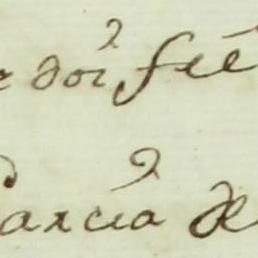 e doi fee
Garcia de